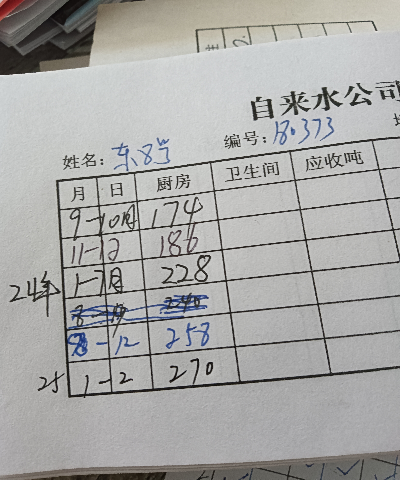 自来水公司
姓名: 东8号 编号: 18.373
月 日 厨房 卫生间 应收吨
9-10月 174
11-12 186
24年 1-7月 228
8-12 258
25 1-2 270